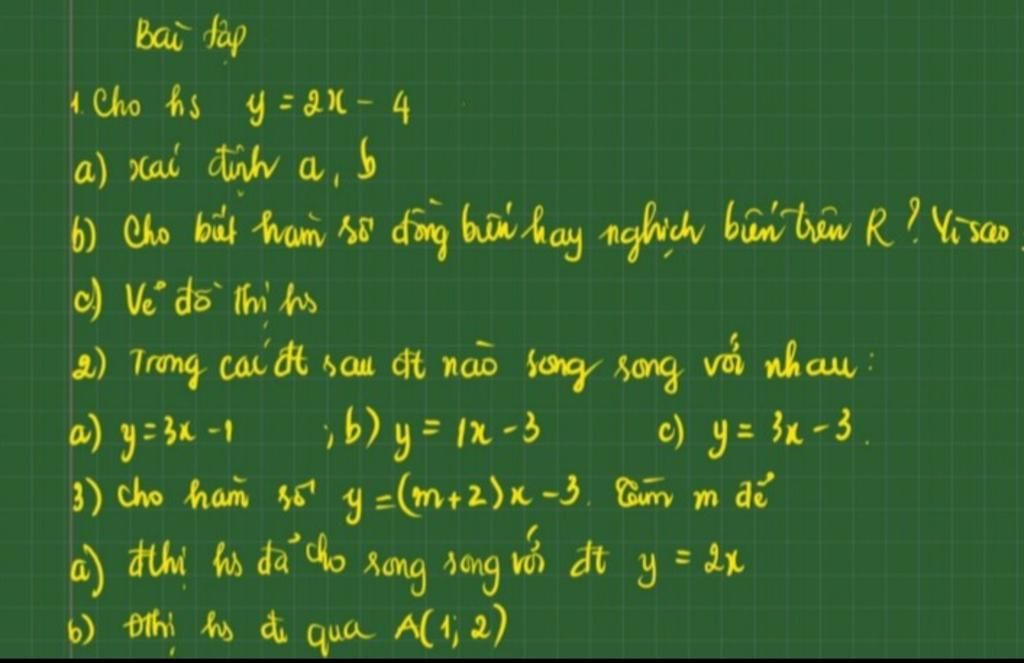 Bài tập
1. Cho hs y = 2x - 4
a) xác định a, b
b) Cho biết hàm số đồng biến hay nghịch biến trên R? Vì sao
c) Vẽ đồ thị hs
2) Trong các đt sau đt nào song song với nhau:
a) y = 3x - 1 ; b) y = 1x - 3 c) y = 3x - 3.
3) Cho hàm số y = (m+2)x - 3. Tìm m để
a) đthị hs đã cho song song với đt y = 2x
b) Đthị hs đi qua A(1; 2)